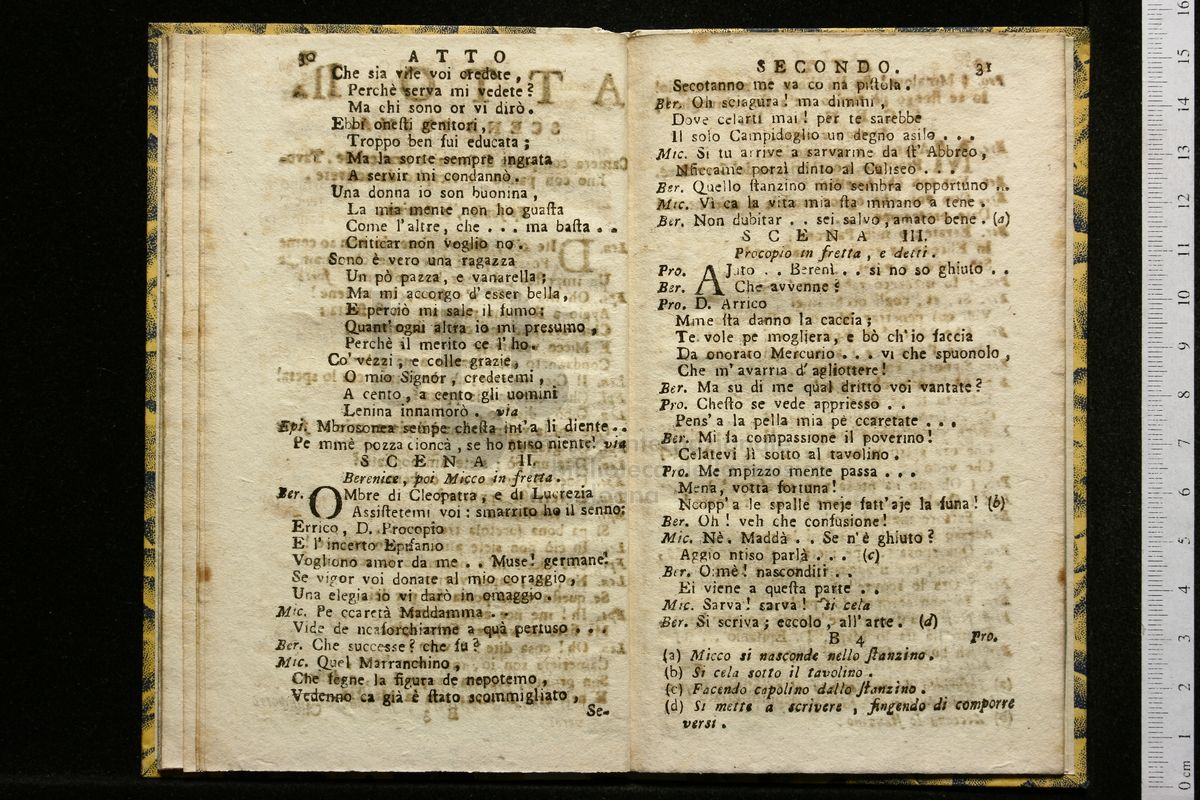 30 ATTO
Che sia vile voi credete,
Perchè serva mi vedete?
Ma chi sono or vi dirò.
Ebbi onesti genitori,
Troppo ben fui educata;
Ma la sorte sempre ingrata
A servir mi condannò.
Una donna io son buonina,
La mia mente non ho guasta
Come l'altre, che . . . ma basta . .
Criticar non voglio no.
Sono è vero una ragazza
Un pò pazza, e vanarella;
Ma mi accorgo d'esser bella,
E perciò mi sale il fumo:
Quant'ogni altra io mi presumo,
Perchè il merito ce l'ho.
Co' vezzi, e colle grazie,
O mio Signor, credetemi,
A cento, a cento gli uomini
Lenina innamorò. via
Epi. Mbrosonea sempe chesta int'a li diente . .
Pe mmè pozza cioncà, se ho ntiso niente! via
SCENA II.
Berenice, poi Micco in fretta.
Ber. OMbre di Cleopatra, e di Lucrezia
Assistetemi voi: smarrito ho il senno:
Errico, D. Procopio
E l'incerto Epifanio
Vogliono amor da me . . Muse! germane!
Se vigor voi donate al mio coraggio,
Una elegia io vi darò in omaggio.
Mic. Pe ccaretà Maddamma . .
Vide de ncaforchiarme a quà pertuso . . .
Ber. Che successe? che fu?
Mic. Quel Marranchino,
Che fegne la figura de nepotemo,
Vedenno ca già è stato scommigliato,
Se-
SECONDO. 31
Secotanno me va co na pistola.
Ber. Oh sciagura! ma dimmi,
Dove celarti mai! per te sarebbe
Il solo Campidoglio un degno asilo . . .
Mic. Si tu arrive a sarvarme da st'Abbreo,
Nficcame porzì dinto al Culiseo . . .
Ber. Quello stanzino mio sembra opportuno . .
Mic. Vi ca la vita mia sta mmano a tene.
Ber. Non dubitar . . sei salvo, amato bene. (a)
SCENA III.
Procopio in fretta, e detti.
Pro. AJuto . . Berenì . . si no so ghiuto . .
Ber. Che avvenne?
Pro. D. Arrico
Mme sta danno la caccia;
Te vole pe mogliera, e bò ch'io faccia
Da onorato Mercurio . . . vi che spuonolo,
Che m'avarria d'agliottere!
Ber. Ma su di me qual dritto voi vantate?
Pro. Chesto se vede appriesso . .
Pens'a la pella mia pe ccaretate . . .
Ber. Mi fa compassione il poverino!
Celatevi lì sotto al tavolino.
Pro. Me mpizzo mente passa . . .
Mena, votta fortuna!
Ncopp'a le spalle meje fatt'aje la funa! (b)
Ber. Oh! veh che confusione!
Mic. Nè. Maddà . . Se n'è ghiuto?
Aggio ntiso parlà . . . (c)
Ber. Oimè! nasconditi . .
Ei viene a questa parte . .
Mic. Sarva! sarva! si cela
Ber. Si scriva; eccolo, all'arte. (d)
B 4 Pro.
(a) Micco si nasconde nello stanzino.
(b) Si cela sotto il tavolino.
(c) Facendo capolino dallo stanzino.
(d) Si mette a scrivere, fingendo di comporre
versi.